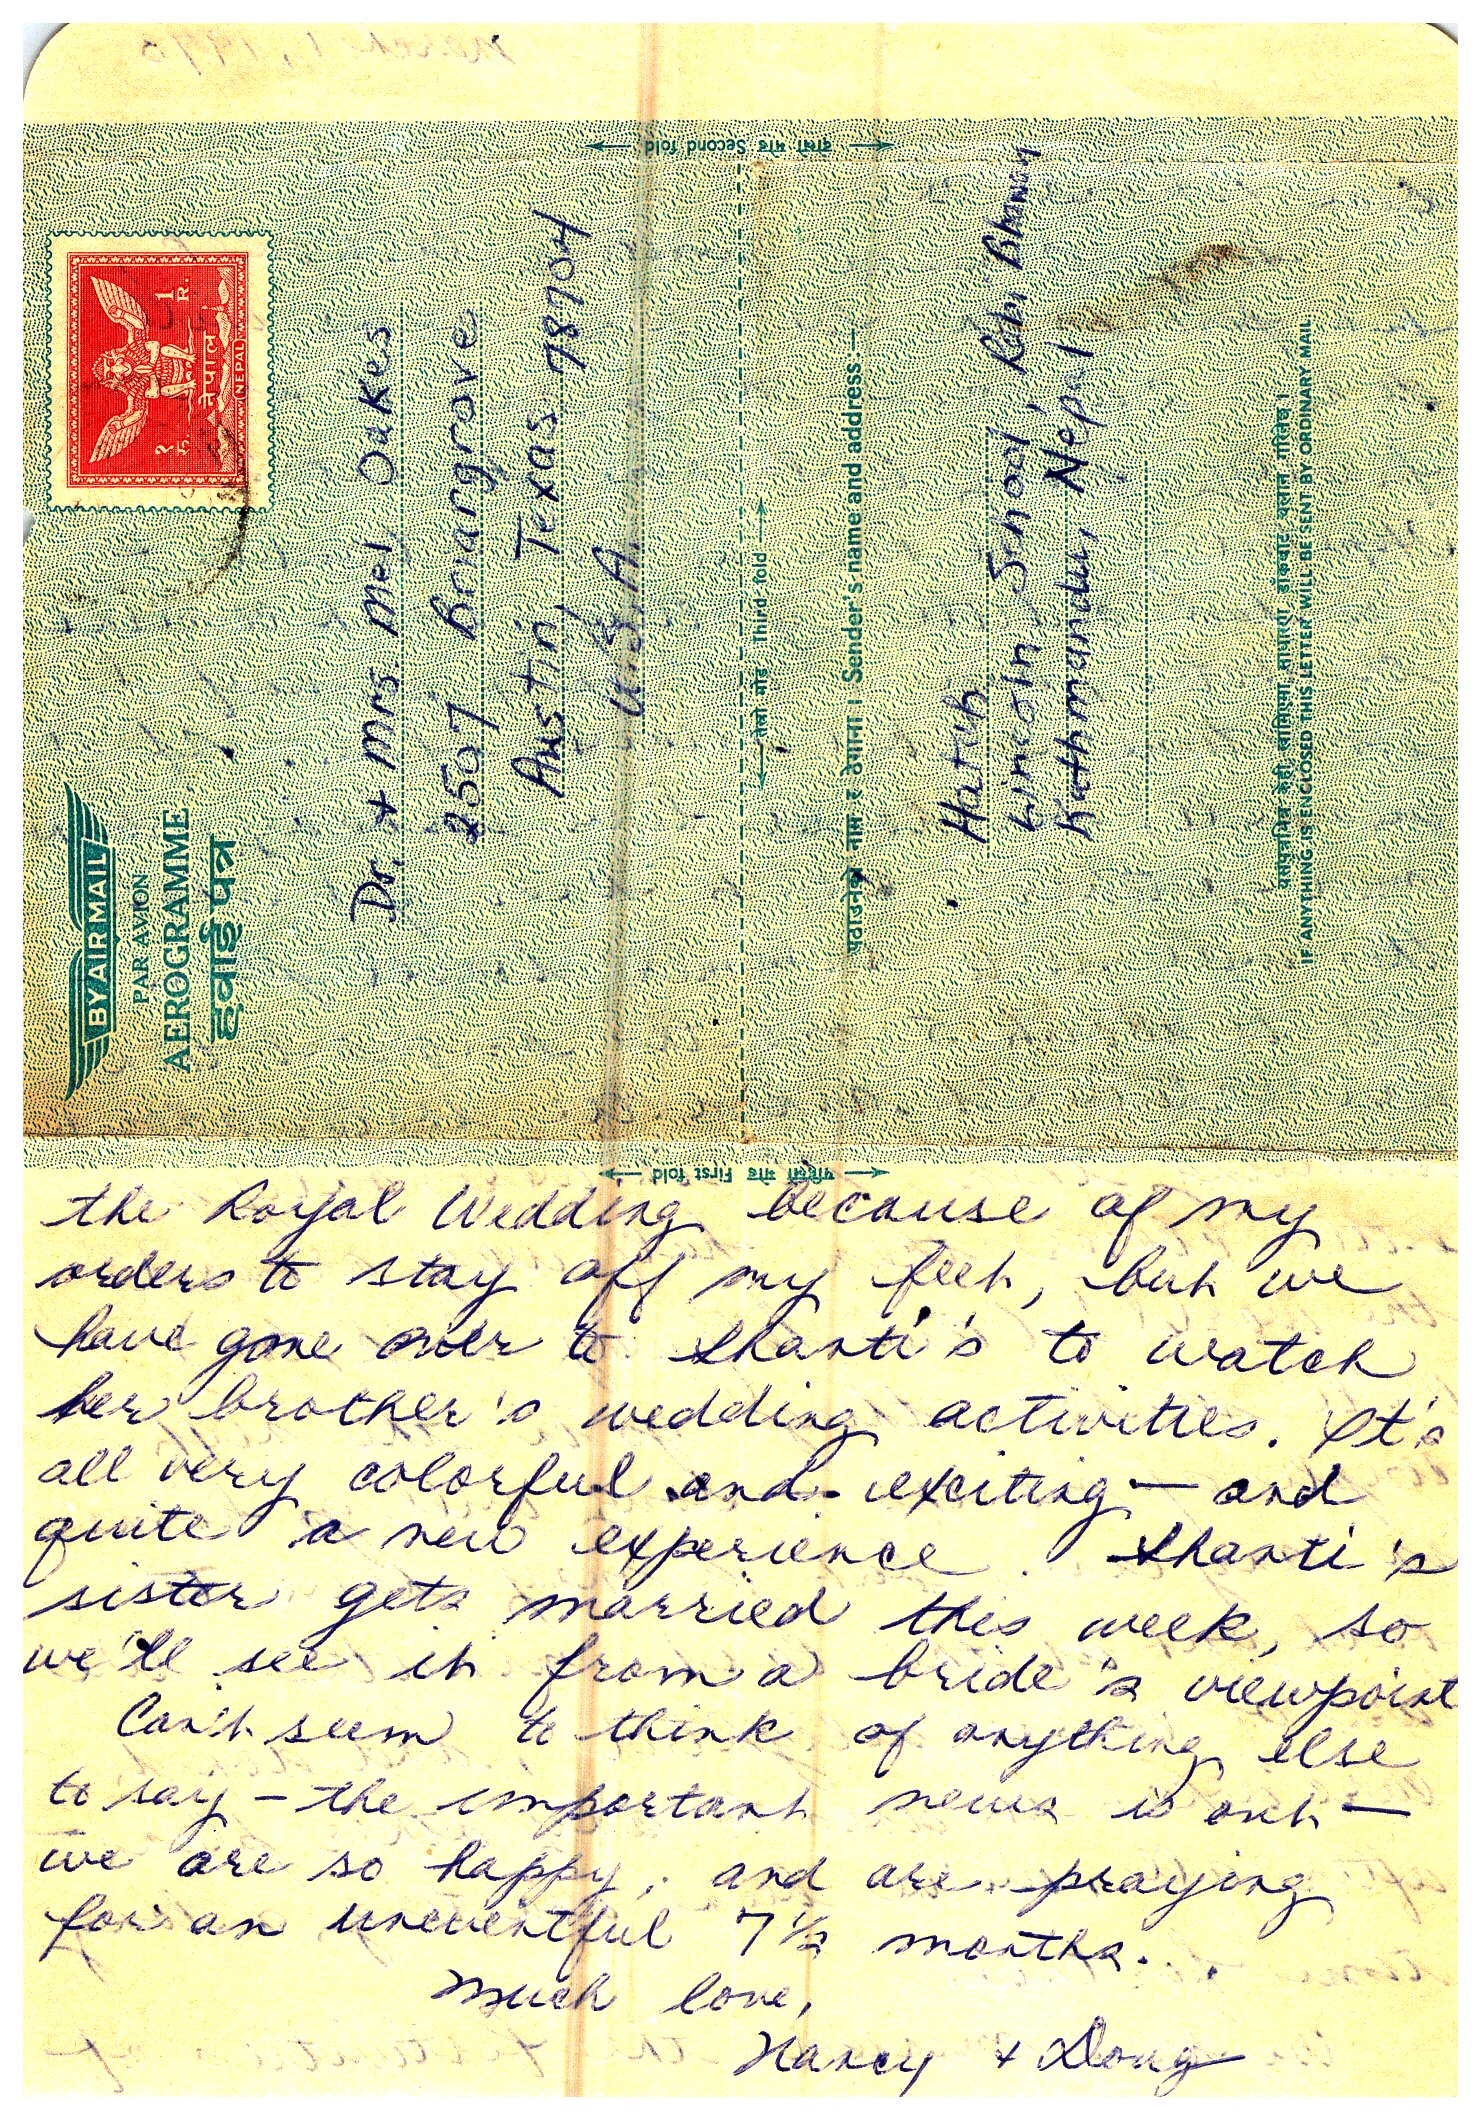 दोस्रो मोड Second fold
१ रु.
1 R.
नेपाल
(NEPAL)
BY AIR MAIL
PAR AVION
AEROGRAMME
हवाई पत्र
Dr. + Mrs. Mel Oakes
2507 Briangrove
Austin, Texas 78704
U.S.A.
तेस्रो मोड Third fold
पठाउनेको नाम र ठेगाना । Sender's name and address
Hatch
Lincoln School, Rabi Bhawan
Kathmandu, Nepal
IF ANYTHING IS ENCLOSED THIS LETTER WILL BE SENT BY ORDINARY MAIL
पहिलो मोड First fold
the Royal Wedding because of my
orders to stay off my feet, but we
have gone over to Shanti's to watch
her brother's wedding activities. It's
all very colorful and exciting — and
quite a new experience. Shanti's
sister gets married this week, so
we'll see it from a bride's viewpoint
Can't seem to think of anything else
to say — the important news is out —
we are so happy, and are praying
for an uneventful 7 1/2 months.
Much love,
Nancy + Doug